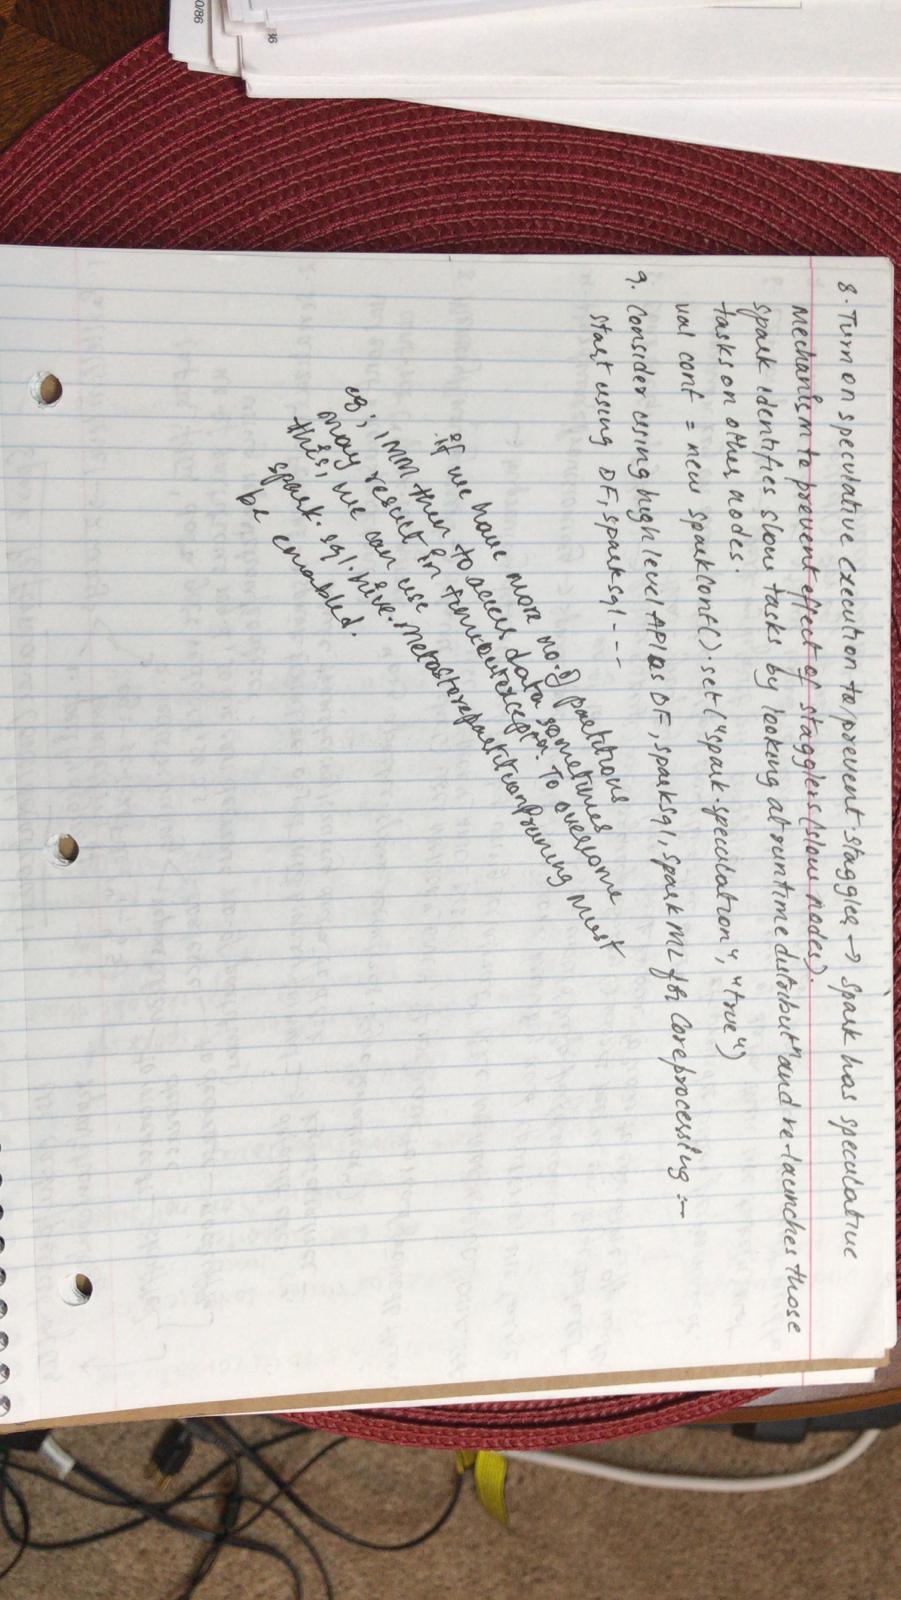 8. Turn on speculative execution to prevent staggler → Spark has speculative
Mechanism to prevent effect of stagglers (slow nodes).
Spark identifies slow tasks by looking at runtime distribut^n and re-launches those
tasks on other nodes.
val conf = new sparkConf().set("spark.speculation", "true")
9. Consider using high level API as DF, sparksql, spark ML for core processing :-
start using DF, sparksql ---
if we have more no. of partitions
eg; 1MM then to access data sometimes
may result in timeout except^n. To overcome
this, we can use
spark.sql.hive.metastorepartitionPruning must
be enabled.
0/86